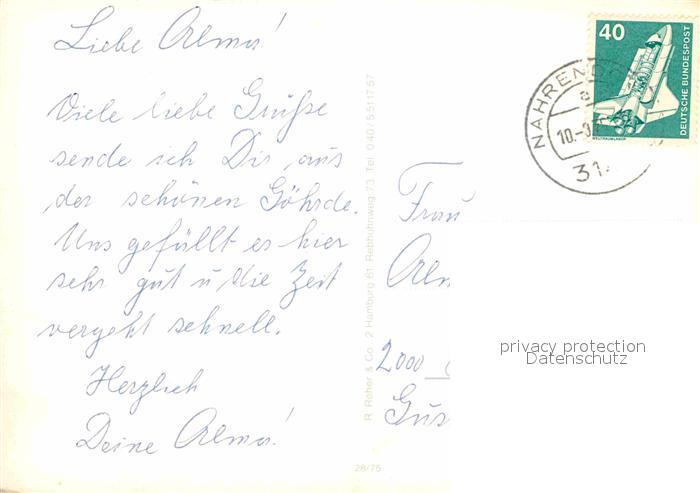 Liebe Alma!
Viele liebe Grüße
sende ich Dir, aus
der schönen Göhrde.
Uns gefällt es hier
sehr gut u die Zeit
vergeht schnell.
Herzlich
Deine Alma!
R. Reher & Co. 2 Hamburg 61 Rebhuhnweg 73 Tel. 040/5511757
28/75
40
DEUTSCHE BUNDESPOST
WELTRAUMLABOR
NAHREND
a
10.-3
31
Frau
2000
privacy protection
Datenschutz